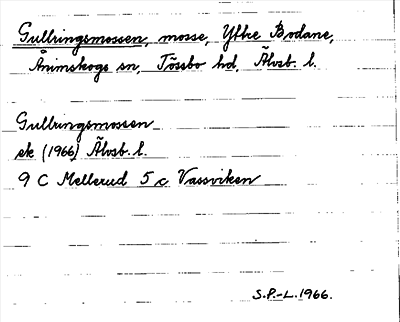 Gullringsmossen, mosse, Yttre Bodane,
Ånimskogs sn, Tössbo hd, Älvsb. l.
Gullringsmossen
ek (1966) Älvsb. l.
9 C Mellerud 5 c Vassviken
S.P.-L. 1966.